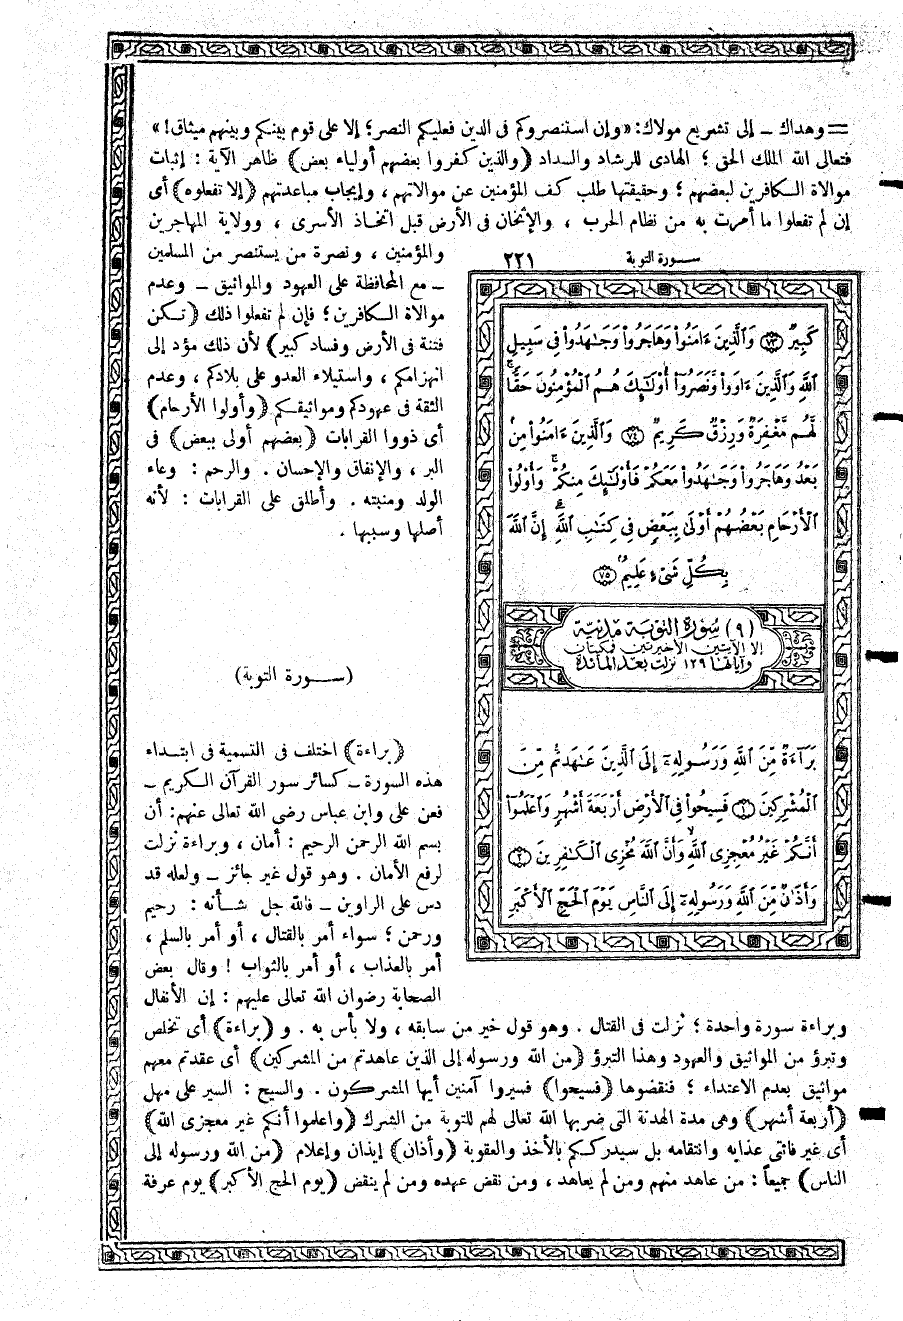 = وهداك ــ إلى تشريع مولاك: «وإن استنصروكم فى الدين فعليكم النصر؛ إلا على قوم بينكم وبينهم ميثاق!»
فتعالى الله الملك الحق؛ الهادى للرشاد والسداد (والذين كفروا بعضهم أولياء بعض) ظاهر الآية: إثبات
موالاة الكافرين لبعضهم؛ وحقيقتها طلب كف المؤمنين عن موالاتهم، وإيجاب مباعدتهم (إلا تفعلوه) أى
إن لم تفعلوا ما أمرت به من نظام الحرب، والإثخان فى الأرض قبل اتخاذ الأسرى، وولاية المهاجرين
والمؤمنين، ونصرة من يستنصر من المسلمين
ــ مع المحافظة على العهود والمواثيق ــ وعدم
موالاة الكافرين؛ فإن لم تفعلوا ذلك (تكن
فتنة فى الأرض وفساد كبير) لأن ذلك مؤد إلى
انهزامكم، واستيلاء العدو على بلادكم، وعدم
الثقة فى عهودكم ومواثيقكم (وأولوا الأرحام)
أى ذووا القرابات (بعضهم أولى ببعض) فى
البر، والإنفاق والإحسان. والرحم: وعاء
الولد ومنبته. وأطلق على القرابات: لأنه
أصلها وسببها.
سورة التوبة ٢٢١
كَبِيرٌ ۝٧٣ وَالَّذِينَ ءَامَنُوا۟ وَهَاجَرُوا۟ وَجَـٰهَدُوا۟ فِى سَبِيلِ
ٱللَّهِ وَٱلَّذِينَ ءَاوَوا۟ وَّنَصَرُوٓا۟ أُو۟لَـٰٓئِكَ هُمُ ٱلْمُؤْمِنُونَ حَقًّا ۚ
لَّهُم مَّغْفِرَةٌ وَرِزْقٌ كَرِيمٌ ۝٧٤ وَٱلَّذِينَ ءَامَنُوا۟ مِنۢ
بَعْدُ وَهَاجَرُوا۟ وَجَـٰهَدُوا۟ مَعَكُمْ فَأُو۟لَـٰٓئِكَ مِنكُمْ ۚ وَأُو۟لُوا۟
ٱلْأَرْحَامِ بَعْضُهُمْ أَوْلَىٰ بِبَعْضٍ فِى كِتَـٰبِ ٱللَّهِ ۗ إِنَّ ٱللَّهَ
بِكُلِّ شَىْءٍ عَلِيمٌۢ ۝٧٥
(٩) سورة التوبة مدنية
إلا الآيتين الأخيرتين فمكيتان
وآياتها ١٢٩ نزلت بعد المائدة
بَرَآءَةٌ مِّنَ ٱللَّهِ وَرَسُولِهِۦٓ إِلَى ٱلَّذِينَ عَـٰهَدتُّم مِّنَ
ٱلْمُشْرِكِينَ ۝١ فَسِيحُوا۟ فِى ٱلْأَرْضِ أَرْبَعَةَ أَشْهُرٍ وَٱعْلَمُوٓا۟
أَنَّكُمْ غَيْرُ مُعْجِزِى ٱللَّهِ ۙ وَأَنَّ ٱللَّهَ مُخْزِى ٱلْكَـٰفِرِينَ ۝٢
وَأَذَٰنٌ مِّنَ ٱللَّهِ وَرَسُولِهِۦٓ إِلَى ٱلنَّاسِ يَوْمَ ٱلْحَجِّ ٱلْأَكْبَرِ
(سورة التوبة)
(براءة) اختلف فى التسمية فى ابتداء
هذه السورة ــ كسائر سور القرآن الكريم ــ
فعن على وابن عباس رضى الله تعالى عنهم: أن
بسم الله الرحمن الرحيم: أمان، وبراءة نزلت
لرفع الأمان. وهو قول غير جائز ــ ولعله قد
دس على الراوين ــ فالله جل شأنه: رحيم
ورحمن؛ سواء أمر بالقتال، أو أمر بالسلم،
أمر بالعذاب، أو أمر بالثواب! وقال بعض
الصحابة رضوان الله تعالى عليهم: إن الأنفال
وبراءة سورة واحدة؛ نزلت فى القتال. وهو قول خير من سابقه، ولا بأس به. و(براءة) أى تخلص
وتبرؤ من المواثيق والعهود وهذا التبرؤ (من الله ورسوله إلى الذين عاهدتم من المشركين) أى عقدتم معهم
مواثيق بعدم الاعتداء؛ فنقضوها (فسيحوا) فسيروا آمنين أيها المشركون. والسيح: السير على مهل
(أربعة أشهر) وهى مدة الهدنة التى ضربها الله تعالى لهم للتوبة من الشرك (واعلموا أنكم غير معجزى الله)
أى غير فائتى عذابه وانتقامه بل سيدرككم بالأخذ والعقوبة (وأذان) إيذان وإعلام (من الله ورسوله إلى
الناس) جميعاً: من عاهد منهم ومن لم يعاهد، ومن نقض عهده ومن لم ينقض (يوم الحج الأكبر) يوم عرفة